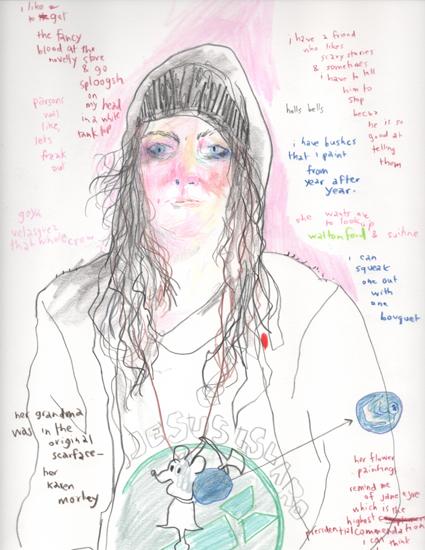 i like
to get
the fancy
blood at the
novelty store
& go
sploogsh
on
my head
in a white
tank top
parsons
vail
like,
lets
freak
out
goya
velasquez
that whole crew
her grandma
was in the
original
scarface-
her
karen
morley
i have a friend
who likes
scary stories
& sometimes
i have to tell
him to
stop
hells bells
becuz
he is so
good at
telling
them
i have bushes
that i paint
from
year after
year.
she wants me
to look up
walton ford & suihne
i can
squeak
one out
with
one
bouquet
JESUS IS LARD
her flower
paintings
remind me
of jane eyre
which is the
highest
presidential commendation
i can
think